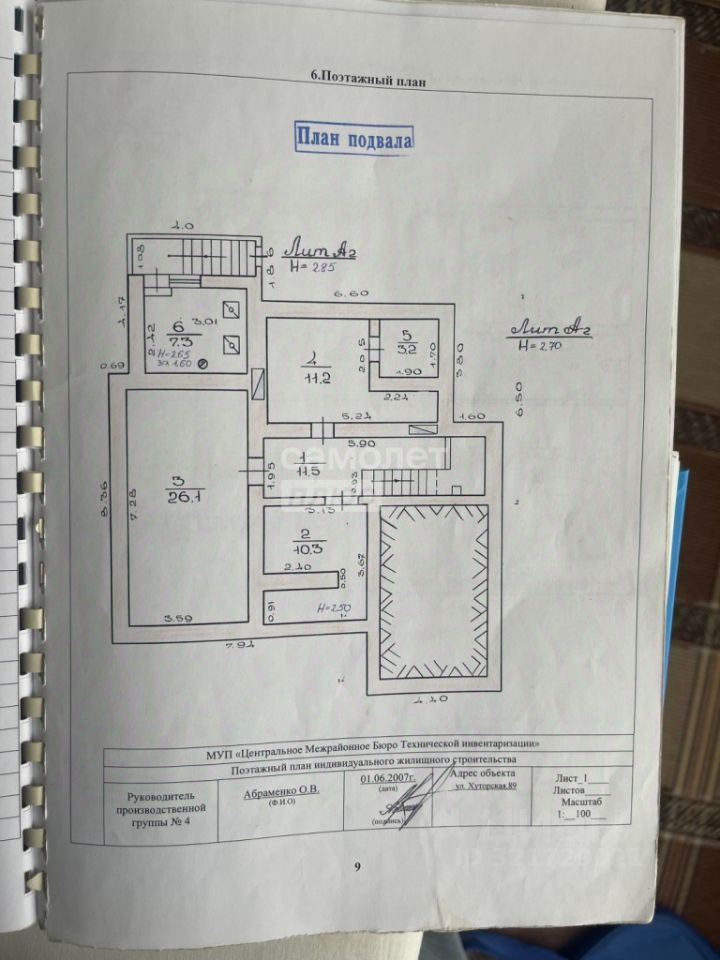 6.Поэтажный план
План подвала
4.0
1.08
Лит Аг
Н= 2.85
1.8
6.60
2.42
3.01
6
7.3
Н=2.65
Лит Аг
Н=2.70
4
11.2
5
3.2
1.70
1.90
2.24
3.80
6.50
0.69
5.24
1.60
5.90
1
11.5
1.95
самолет
плюс
3
26.1
7.28
8.36
3.13
2
10.3
2.40
0.50
3.67
Н=2.50
0.91
3.59
7.94
4.40
МУП «Центральное Межрайонное Бюро Технической инвентаризации»
Поэтажный план индивидуального жилищного строительства
Руководитель
производственной
группы № 4
Абраменко О.В.
(Ф.И.О)
01.06.2007г.
(дата)
(подпись)
Адрес объекта
ул. Хуторская,89
Лист_1____
Листов_____
Масштаб
1:__100___
9